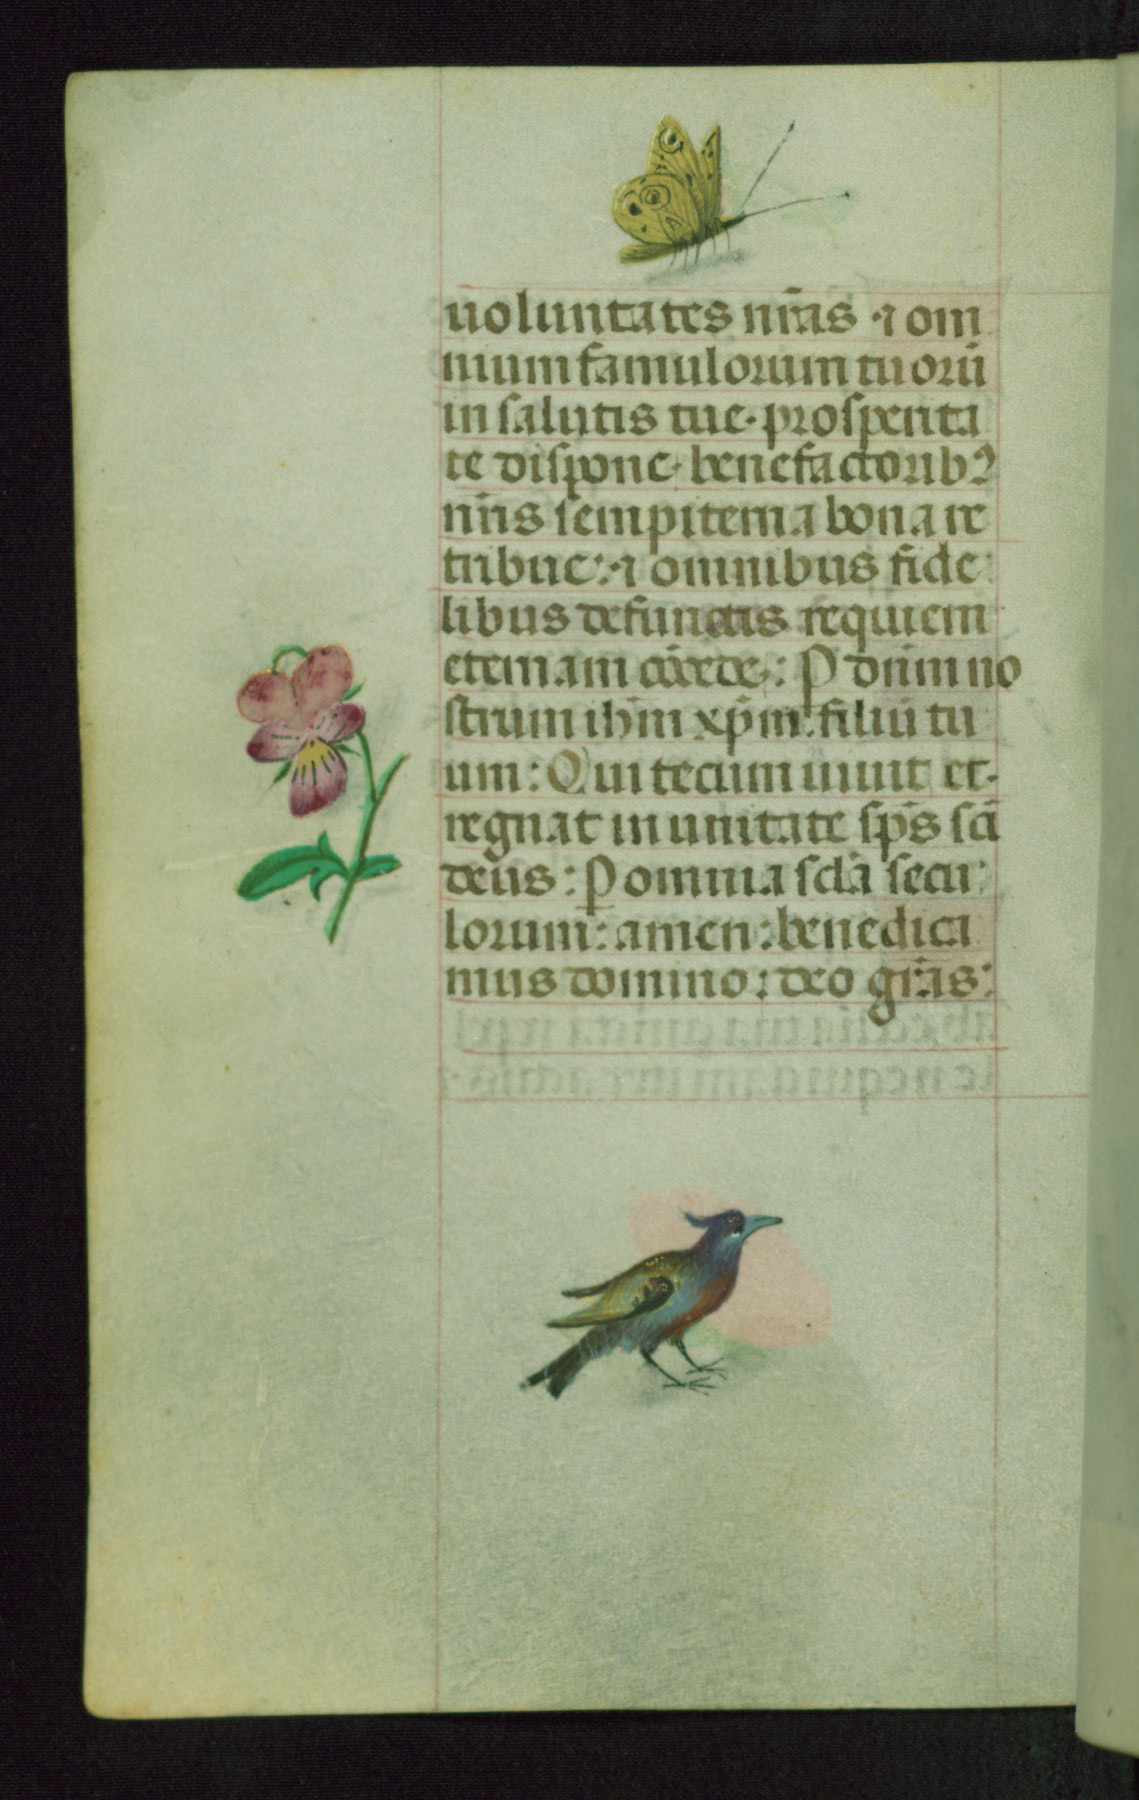 uoluntates nr̄as ⁊ om
nium famulorum tuorū
in salutis tue· prosperita
te dispone· benefactoribꝰ
nr̄is sempiterna bona re
tribue: ⁊ omnibus fide
libus defunctis requiem
eternam cōcede: P dnīm no
strum ihm̄ xp̄m filiū tu
um: Qui tecum uiuit et
regnat in unitate sp̄s scī
deus: P omnia scl̄a secu
lorum: amen: benedica
mus domino: deo gr̄as: